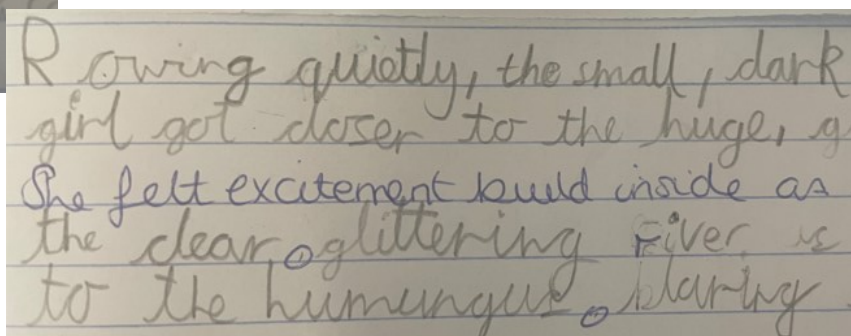 Rowing quietly, the small, dark
girl got closer to the huge, g
She felt excitement build inside as
the clear, glittering river is
to the humungus, blaring